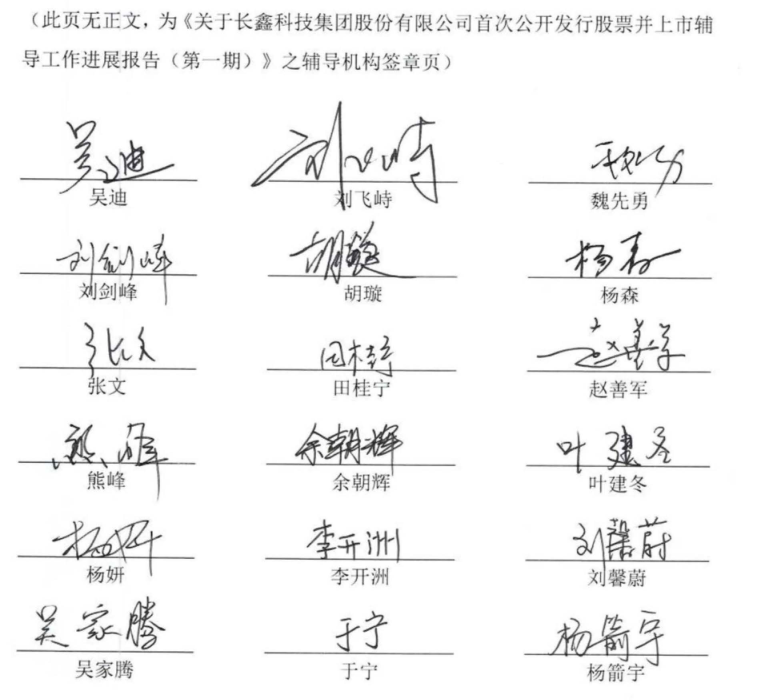 （此页无正文，为《关于长鑫科技集团股份有限公司首次公开发行股票并上市辅
导工作进展报告（第一期）》之辅导机构签章页）
吴迪 刘飞峙 魏先勇
吴迪 刘飞峙 魏先勇
刘剑峰 胡璇 杨森
刘剑峰 胡璇 杨森
张文 田桂宁 赵善军
张文 田桂宁 赵善军
熊峰 余朝辉 叶建冬
熊峰 余朝辉 叶建冬
杨妍 李开洲 刘馨蔚
杨妍 李开洲 刘馨蔚
吴家腾 于宁 杨箭宇
吴家腾 于宁 杨箭宇